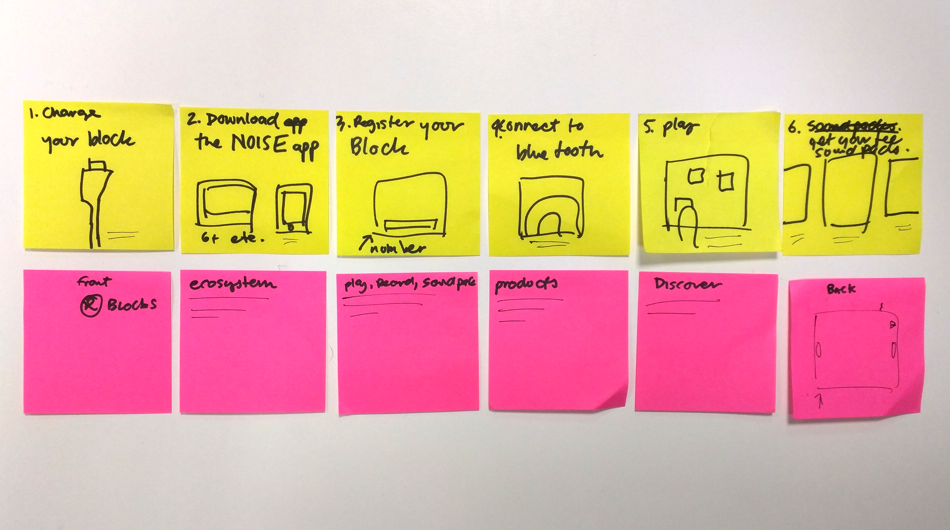 1. Change
your block
2. Download app
the NOISE app
6+ etc.
3. Register your
Block
number
4. Connect to
blue tooth
5. play
6. Sound packs.
get your free
sound packs.
Front
Blocks
ecosystem
play, Record, sound pack
products
Discover
Back